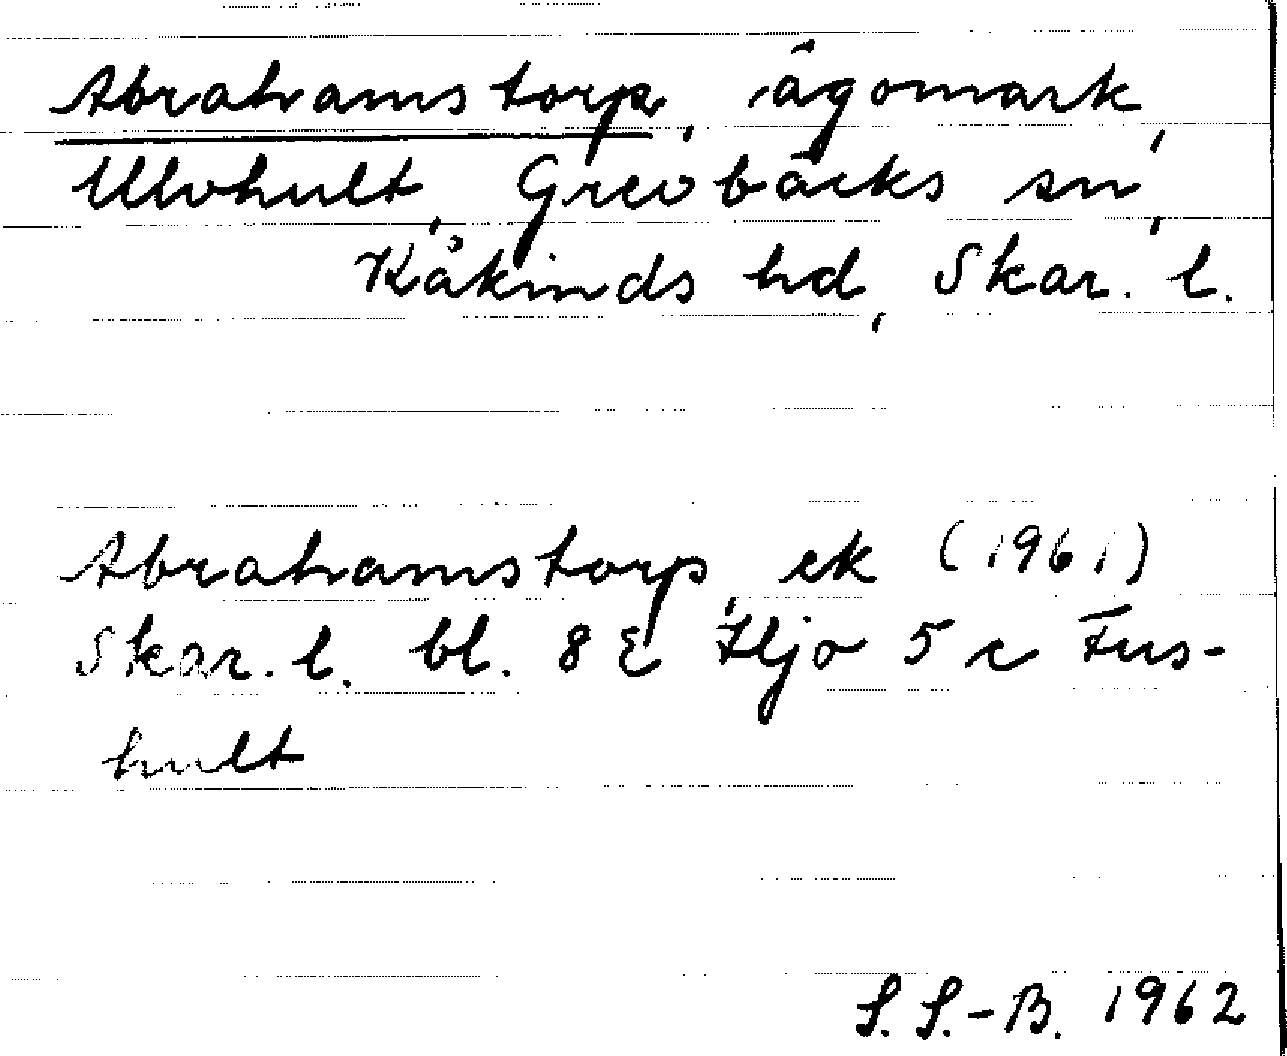 Abrahamstorp, ägomark,
Ulvhult, Grevbäcks sn,
Kåkinds hd, Skar. l.
Abrahamstorp, ek (1961)
Skar. l. bl. 8 E Hjo 5 c Fus-
hult
S. S.-B. 1962